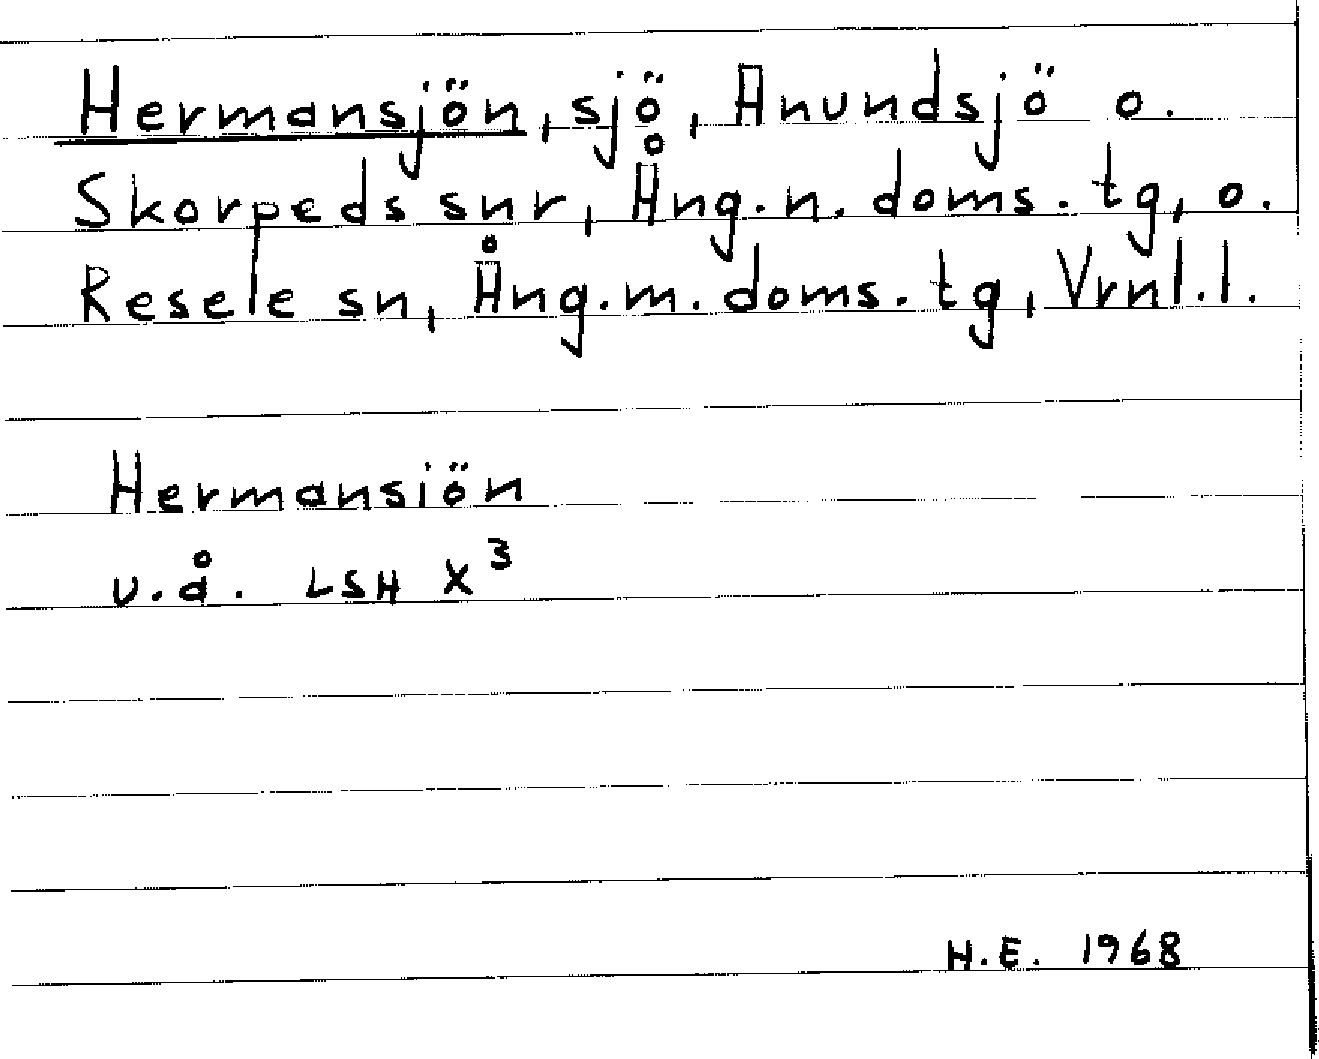 Hermansjön, sjö, Anundsjö o.
Skorpeds snr, Ång.n. doms. tg, o.
Resele sn, Ång.m. doms. tg, Vrnl.l.
Hermansiön
u.å. LSH X³
H.E. 1968